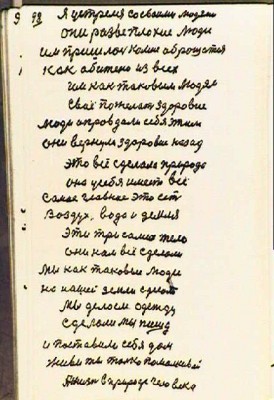 9 98 Я устремя со своими людьми
они разве плохие люди
им пришлон комне аброщатся
как абитено из всех
им как таковым людям
своё пожелат здоровие
люди оправдали себя этим
они вернули здоровие назад
это всё сделала природа
она у себя имеет всё
самое главное это ест
воздух, вода и земля
эти три самих тело
они нам всё сделали
мы как таковые люди
на нашей земли
мы делаем одежду
сделали мы пищу
и поставили себя дом
живи ты только помалкивай
Жизнь в природе человека